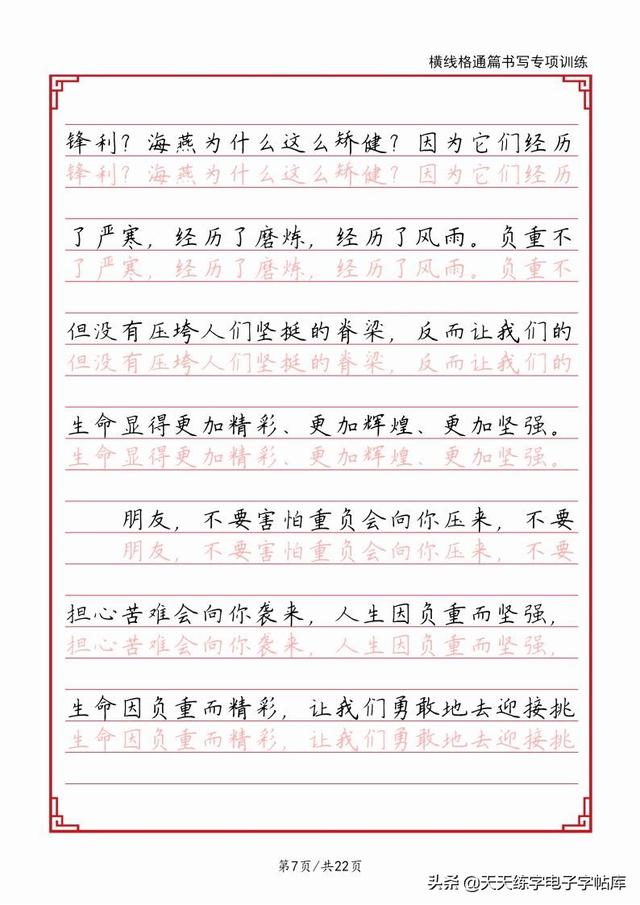 横线格通篇书写专项训练
锋利？海燕为什么这么矫健？因为它们经历
锋利？海燕为什么这么矫健？因为它们经历
了严寒，经历了磨炼，经历了风雨。负重不
了严寒，经历了磨炼，经历了风雨。负重不
但没有压垮人们坚挺的脊梁，反而让我们的
但没有压垮人们坚挺的脊梁，反而让我们的
生命显得更加精彩、更加辉煌、更加坚强。
生命显得更加精彩、更加辉煌、更加坚强。
朋友，不要害怕重负会向你压来，不要
朋友，不要害怕重负会向你压来，不要
担心苦难会向你袭来，人生因负重而坚强，
担心苦难会向你袭来，人生因负重而坚强，
生命因负重而精彩，让我们勇敢地去迎接挑
生命因负重而精彩，让我们勇敢地去迎接挑
第7页/共22页
头条@天天练字电子字帖库